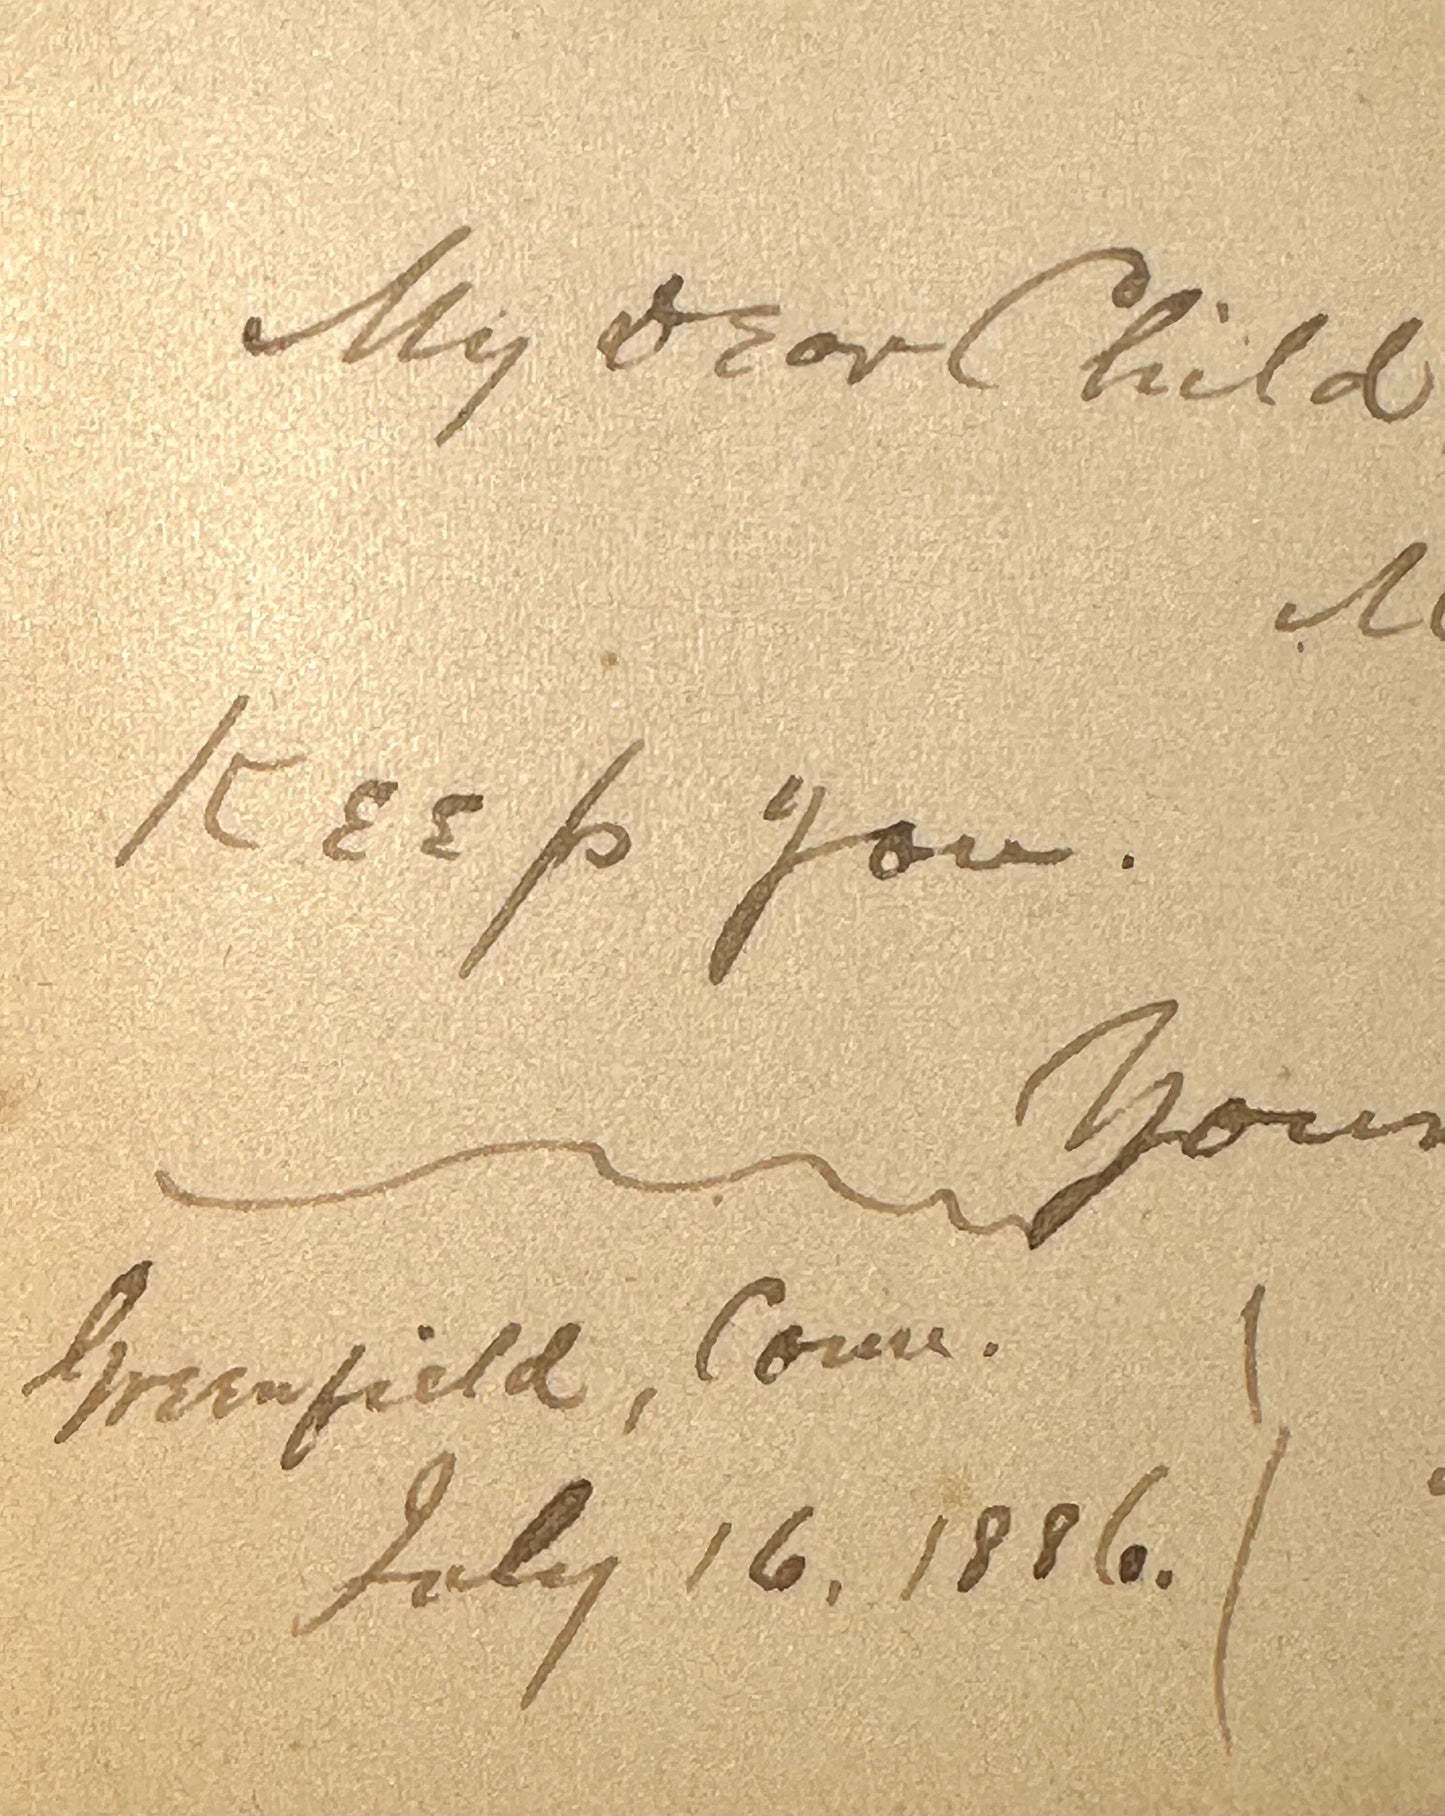 My Dear Child
Keep you.
Greenfield, Conn.
July 16, 1886.